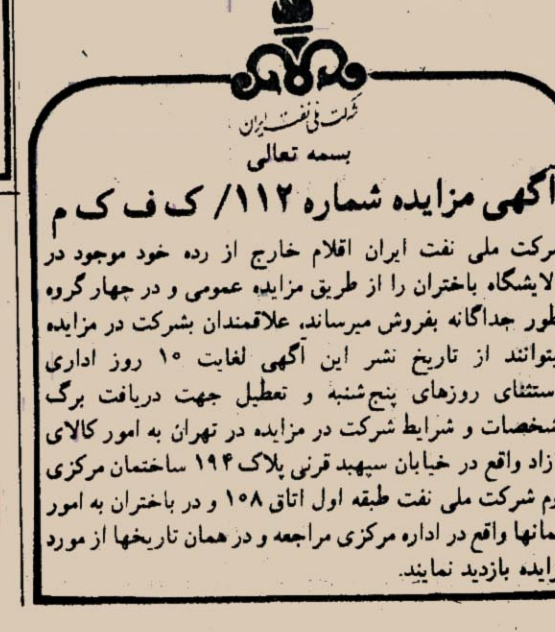 شرکت ملی نفت ایران
بسمه تعالی
آگهی مزایده شماره ۱۱۲/ ک ف ک م
رکت ملی نفت ایران اقلام خارج از رده خود موجود در
لایشگاه باختران را از طریق مزایده عمومی و در چهار گروه
طور جداگانه بفروش میرساند، علاقمندان بشرکت در مزایده
یتوانند از تاریخ نشر این آگهی لغایت ۱۰ روز اداری
ستثنای روزهای پنج‌شنبه و تعطیل جهت دریافت برگ
شخصات و شرایط شرکت در مزایده در تهران به امور کالای
زاد واقع در خیابان سپهبد قرنی پلاک ۱۹۴ ساختمان مرکزی
وم شرکت ملی نفت طبقه اول اتاق ۱۰۸ و در باختران به امور
مانها واقع در اداره مرکزی مراجعه و در همان تاریخها از مورد
زایده بازدید نمایند.